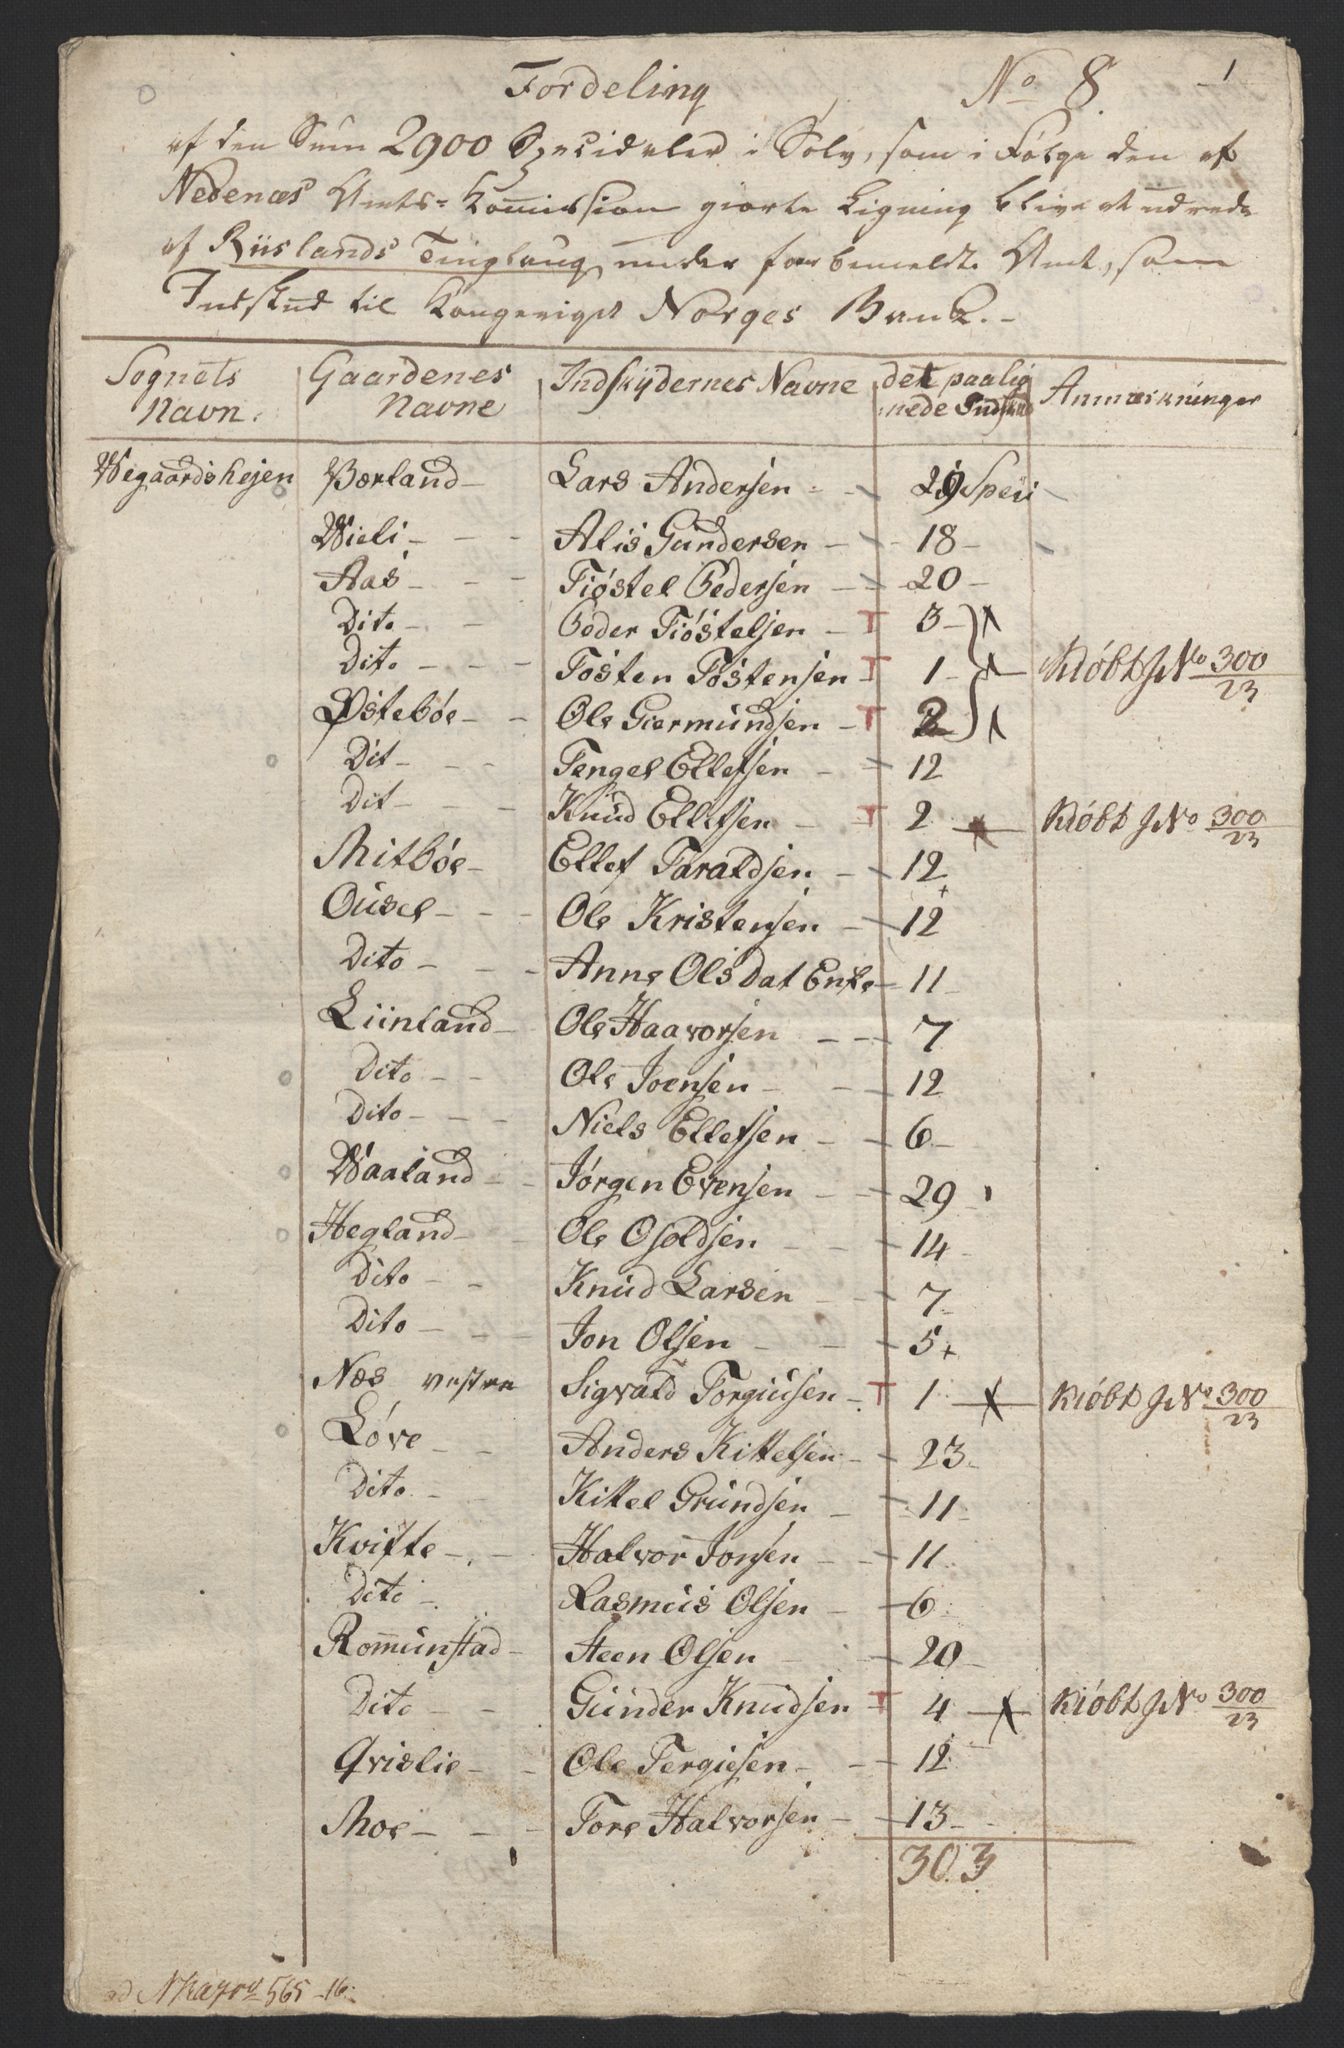 Fordeling No 8. 1
af den Sum 2900 Speciedaler i Sølv, som i Følge den af
Nedenæs Amts-Kommission giorte Ligning bliver at udrede
af Riislands Tinglaug under forbemeldte Amt, som
Indskud til Kongeriget Norges Bank.
Sognets Navn. Gaardenes Navne Indskydernes Navne det paalignede Indskud Anmærkninger
Wegaardshejen Værland Lars Andersen 29 Speci
Wieli Alis Gundersen 18
Aas Tiøstel Pedersen 20
Dito Peder Tiøstelsen T 3
Dito Tosten Tostensen T 1 Kiøbt J No 300/23
Østebøe Ole Giermundsen T 2
Dit Tengel Ellefsen 12
Dit Knud Ellefsen T 2 Kiøbt J No 300/23
Mitbøe Ellef Taraldsen 12
Ousel Ole Kristensen 12
Dito Anne Olsdat Enke 11
Liinland Ole Haavorsen 7
Dito Ole Joensen 12
Dito Niels Ellefsen 6
Waaland Jørgen Evensen 29
Hegland Ole Osoldsen 14
Dito Knud Larsen 7
Dito Jon Olsen 5
Næs vestre Sigvald Torgiusen T 1 Kiøbt J No 300/23
Løve Anders Kittelsen 23
Dito Kittel Grundsen 11
Kvifte Halvor Jonsen 11
Dito Rasmus Olsen 6
Rommunstad Steen Olsen 20
Dito Gunder Knudsen T 4 Kiøbt J No 300/23
Qvislie Ole Tergiesen 12
Moe Tore Halvorsen 13
303
565 16